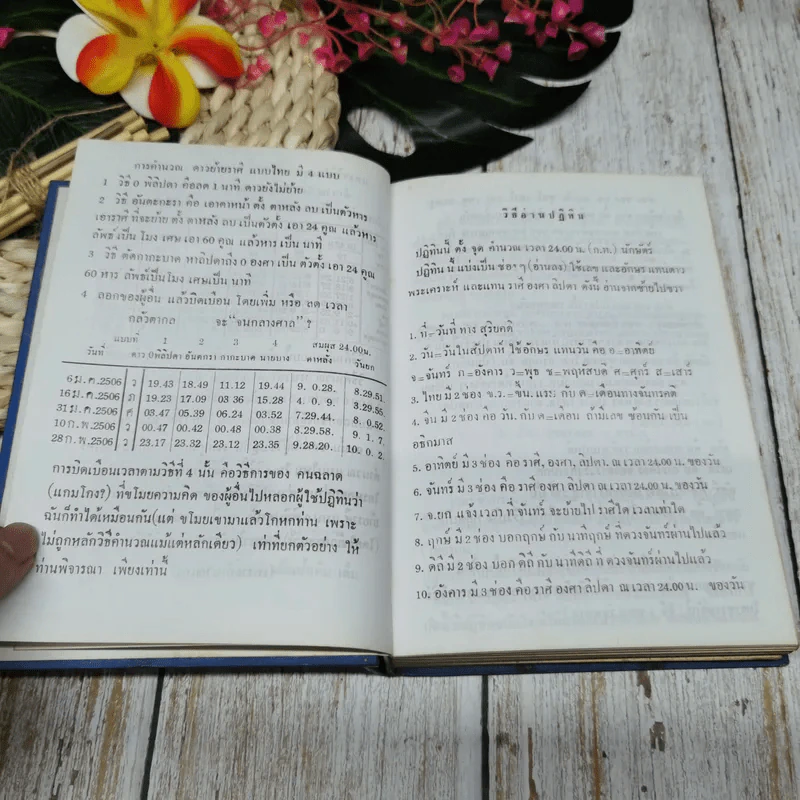 การคำนวณ ดาวย้ายราศี แบบไทย มี 4 แบบ
1 วิธี 0 พิลิปดา คือลด 1 นาที ดาวยังไม่ย้าย
2 วิธี อันตะกะรา คือ เอาดาหน้า ตั้ง ดาหลัง ลบ เป็นตัวหาร
เอาราศี ที่จะย้าย ตั้ง ดาหลัง ลบ เป็นตัวตั้ง เอา 24 คูณ แล้วหาร
ลัพธ์ เป็น โมง เศษ เอา 60 คูณ แล้วหาร เป็น นาที
3 วิธี ตัดกากะบาด หาลิปดาถึง 0 องศา เป็น ตัวตั้ง เอา 24 คูณ
60 หาร ลัพธ์เป็นโมง เศษเป็น นาที
4 ลอกของผู้อื่น แล้วบิดเบือน โดยเพิ่ม หรือ ลด เวลา
กลัวตากล จะ"จนกลางศาล"?
แบบที่ 1 2 3 4 สมผุส 24.00น.
วันที่ ดาว 0พิลิปดา อันตกรา กากะบาด นายบาง ดาหลัง วันยก
6 ม.ค.2506 ว 19.43 18.49 11.12 19.44 9. 0.28. 8.29.51.
16 ม.ค.2506 ภ 19.23 17.09 03 36 15.28 4. 0. 9. 3.29.55.
31 ม.ค.2506 ศ 03.47 05.39 06.24 03.52 7.29.44. 8. 0.52.
10 ก.พ.2506 ว 00.47 00.42 00.48 00.38 8.29.58. 9. 1. 7.
28 ก.พ.2506 ว 23.17 23.32 23.12 23.35 9.28.20. 10. 0. 2.
การบิดเบือนเวลาตามวิธีที่ 4 นั้น คือวิธีการของ คนฉลาด
(แกมโกง?) ที่ขโมยความคิด ของผู้อื่นไปหลอกผู้ใช้ปฏิทินว่า
ฉันก็ทำได้เหมือนกัน(แต่ ขโมยเขามาแล้วโกหกท่าน เพราะ
ไม่ถูกหลักวิธีคำนวณแม้แต่หลักเดียว) เท่าที่ยกตัวอย่าง ให้
ท่านพิจารณา เพียงเท่านี้
วิธีอ่านปฏิทิน
ปฏิทินนี้ ตั้ง จุด คำนวณ เวลา 24.00 น. (ก.ท.) นักษัตร์
ปฏิทิน นี้ แบ่งเป็น ช่อง ๆ (อ่านลง) ใช้เลข และอักษร แทนดาว
พระเคราะห์ และแทน ราศี องศา ลิปดา ดังนี้ อ่านจากซ้ายไปขวา
1. ที่=วันที่ ทาง สุริยคติ
2. วัน=วันในสัปดาห์ ใช้อักษร แทนวัน คือ อ=อาทิตย์
จ=จันทร์ ภ=อังคาร ว=พุธ ช=พฤหัสบดี ศ=ศุกร์ ส=เสาร์
3. ไทย มี 2 ช่อง ข.ว.=ขึ้น.แร. กับ ด=เดือนทางจันทรคติ
4. จีน มี 2 ช่อง คือ วัน. กับ ด=เดือน ถ้ามีเลข ซ้อนกัน เป็น
อธิกมาส
5. อาทิตย์ มี 3 ช่อง คือ ราศี, องศา, ลิปดา. ณ เวลา 24.00น. ของวัน
6. จันทร์ มี 3 ช่อง คือ ราศี องศา ลิปดา ณ เวลา 24.00น. ของวัน
7. จ.ยก แจ้ง เวลา ที่ จันทร์ จะย้ายไป ราศีใด เวลาเท่าใด
8. ฤกษ์ มี 2 ช่อง บอกฤกษ์ กับ นาทีฤกษ์ ที่ดวงจันทร์ผ่านไปแล้ว
9. ดิถี มี 2 ช่อง บอก ดิถี กับ นาทีดิถี ที่ ดวงจันทร์ผ่านไปแล้ว
10. อังคาร มี 3 ช่อง คือ ราศี องศา ลิปดา ณ เวลา 24.00 น. ของวัน